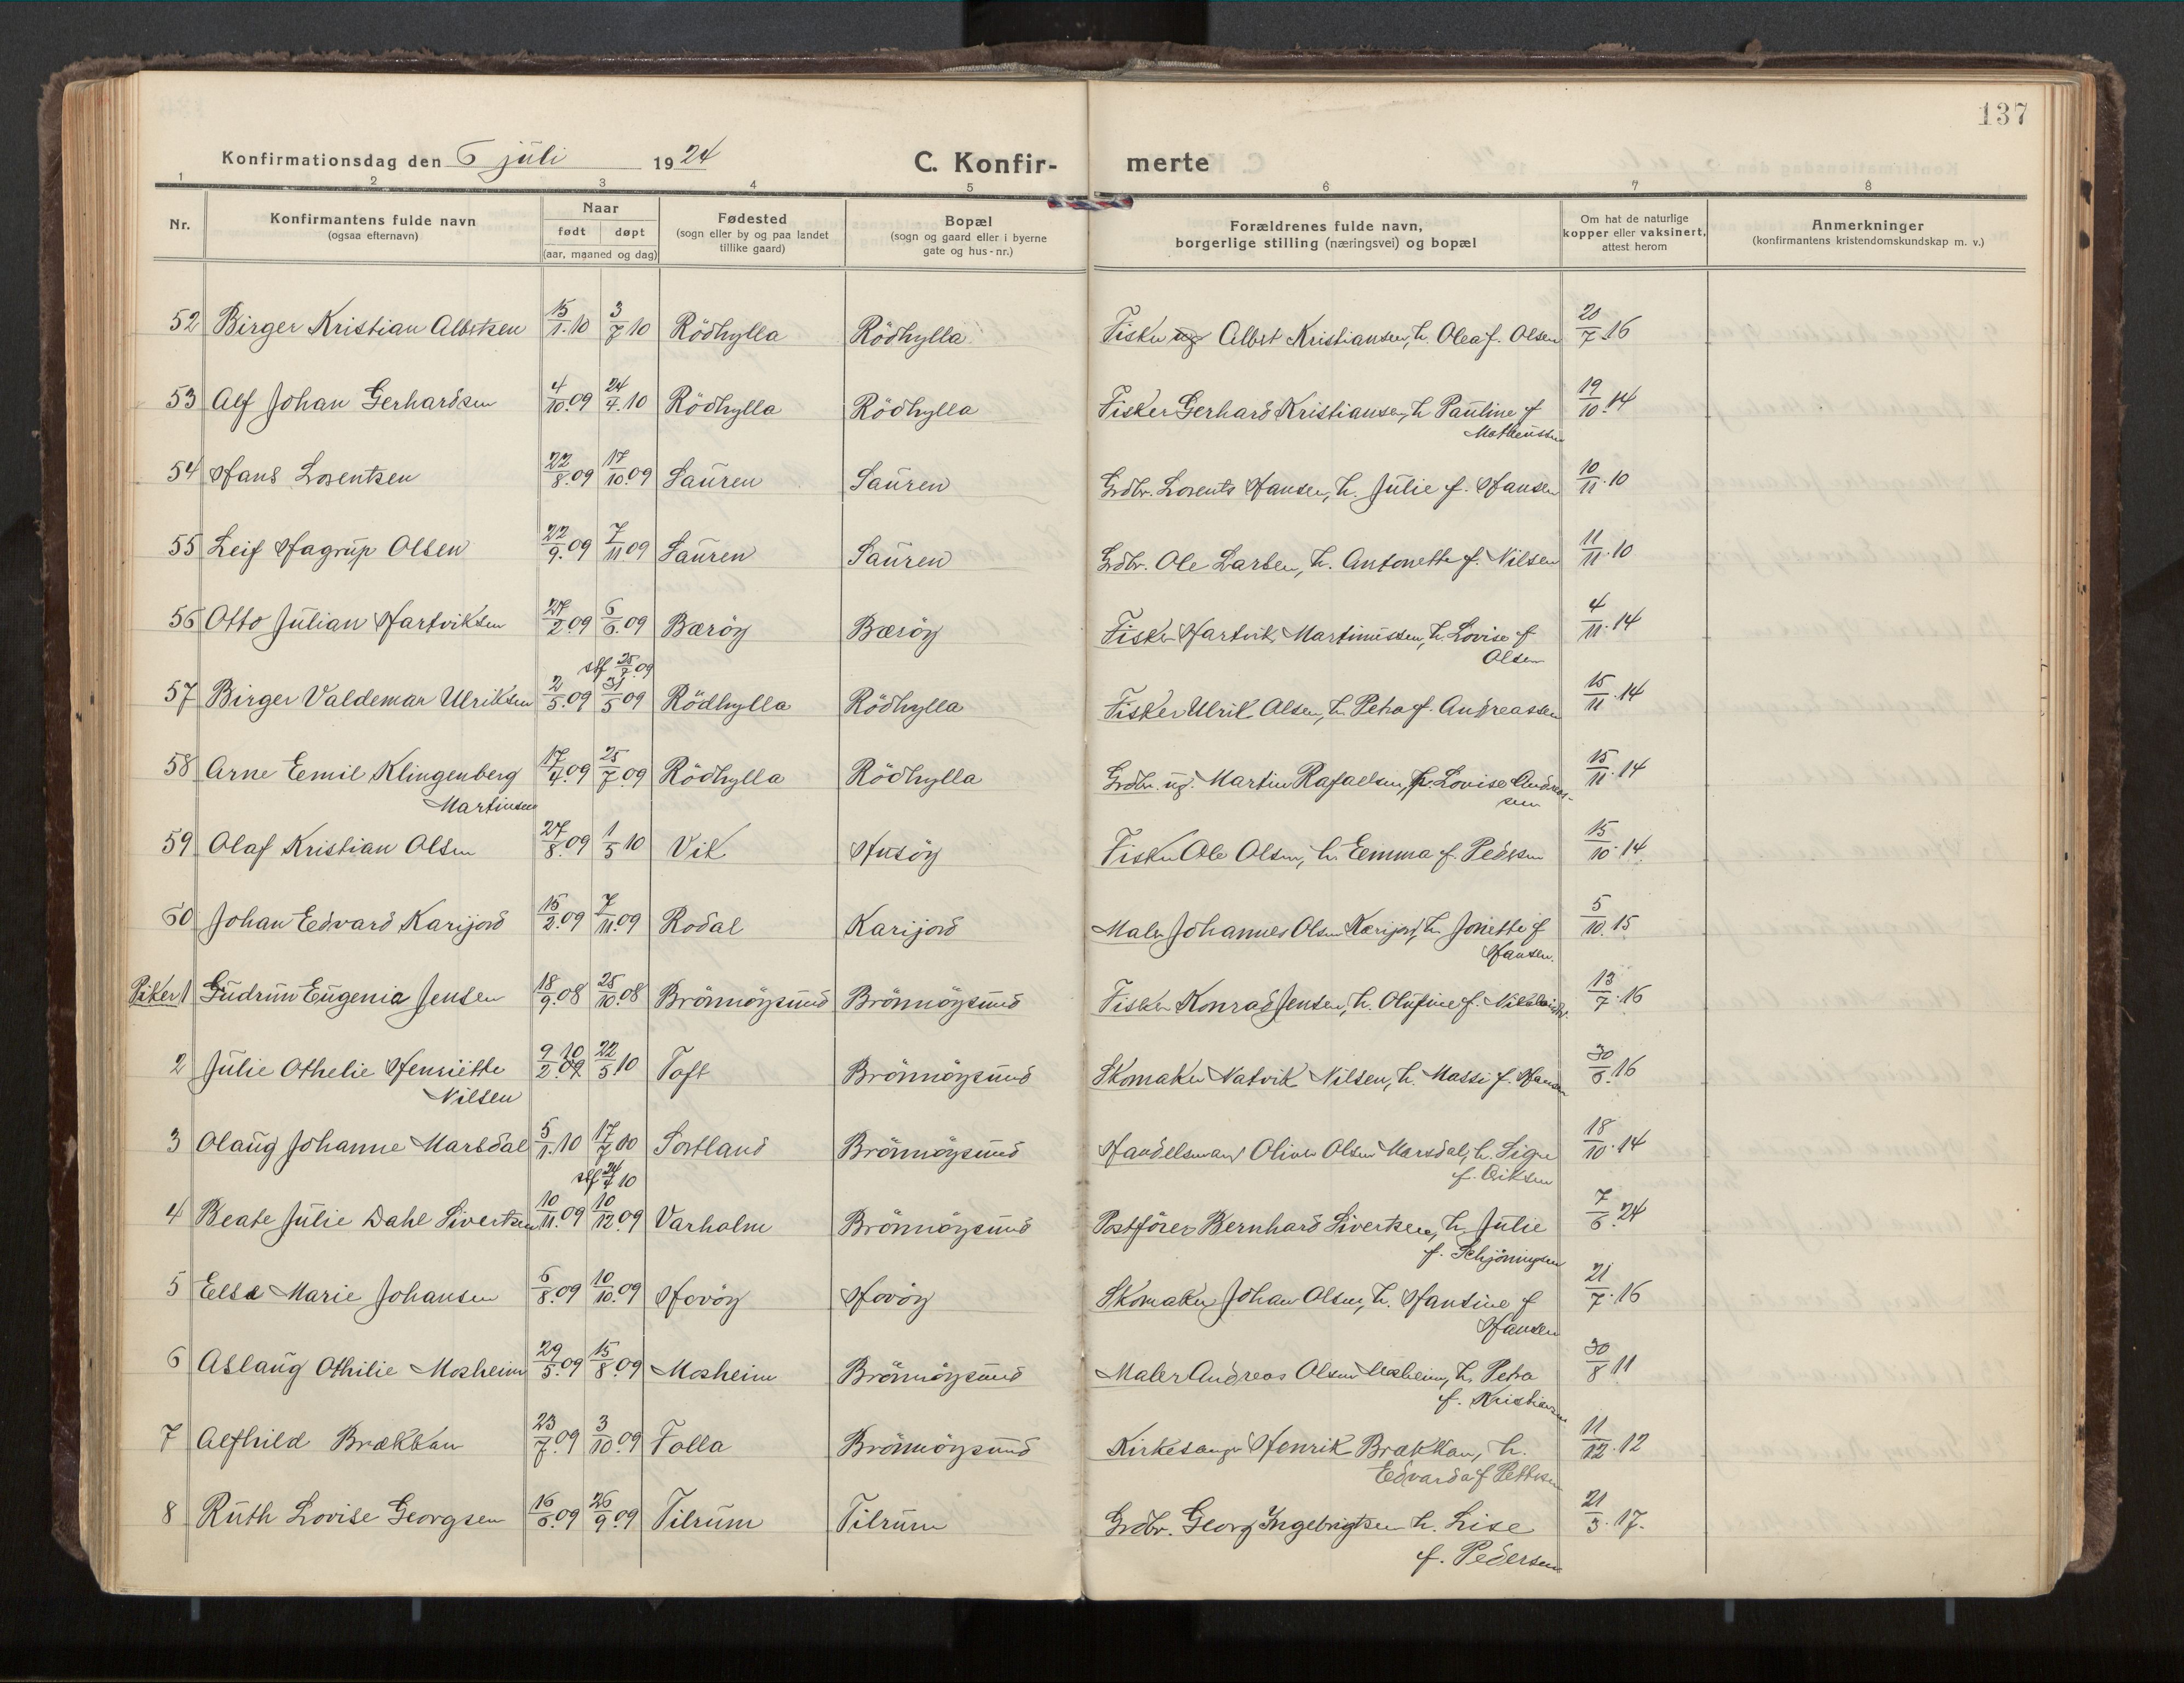 137
Konfirmationsdag den 6 juli 1924
C. Konfir-
merte
1 2 3 4 5 6 7 8
Nr.
Konfirmantens fulde navn
(ogsaa efternavn)
Naar
født døpt
(aar, maaned og dag)
Fødested
(sogn eller by og paa landet
tillike gaard)
Bopæl
(sogn og gaard eller i byerne
gate og hus-nr.)
Forældrenes fulde navn,
borgerlige stilling (næringsvei) og bopæl
Om hat de naturlige
kopper eller vaksinert,
attest herom
Anmerkninger
(konfirmantens kristendomskundskap m. v.)
52 Birger Kristian Albertsen 15/1.10 3/7 10 Rödhylla Rödhylla Fisker Albert Kristiansen, h. Olea f. Olsen 20/7.16
53 Alf Johan Gerhardsen 4/10.09 24/4.10 Rödhylla Rödhylla Fisker Gerhard Kristiansen, h. Pauline f
Matheussen 19/10.14
54 Hans Lorentsen 22/8.09 17/10.09 Sauren Sauren Grdbr. Lorents Hansen, h. Julie f. Hansen 10/11.10
55 Leif Hagrup Olsen 22/9.09 7/11 09 Sauren Sauren Grdbr. Ole Larsen, h. Antonette f. Nilsen 11/11.10
56 Otto Julian Hartviksen 27/2.09 6/6.09 Bæröy Bæröy Fisker Hartvik Martinussen, h. Lovise f
Olsen 4/11.14
stf 25/7.09
57 Birger Valdemar Ulriksen 2/5.09 31/5 09 Rödhylla Rödhylla Fisker Ulrik Olsen, h. Petra f. Andreassen 15/11.14
58 Arne Emil Klingenberg 17/4.09 25/7 09 Rödhylla Rödhylla Grdbr. ug. Martin Rafaelsen, p. Lovise Andreas-
Martinsen sen 15/11.14
59 Olaf Kristian Olsen 27/8.09 1/5 10 Vik Husöy Fisker Ole Olsen, h. Emma f. Pedersen 15/10.14
60 Johan Edvard Karijord 15/2.09 7/11.09 Rodal Karijord Maler Johannes Olsen Karijord, h. Jonette f
Hansen. 5/10.15
Piker 1 Gudrun Eugenia Jensen 18/9.08 25/10.08 Brönnöysund Brönnöysund Fisker Konrad Jensen, h. Olufine f. 13/7.16
2 Julie Othelie Henriette 9/2.09 10 22/5 10 Toft Brönnöysund Skomaker Natvik Nilsen, h. Massi f. Hansen 30/6.16
Nilsen
3 Olaug Johanne Marsdal 5/1.10 17/7 10 Sortland Brönnöysund Handelsmand Oliver Olsen Marsdal, h. Signe
f. Eriksen 18/10.14
stf 24/4 10
4 Beate Julie Dahl Sivertsen 10/11.09 10/12.09 Varholm Brönnöysund Postförer Bernhard Sivertsen, h. Julie
f. Schjöningsen 7/6.24
5 Else Marie Johansen 6/8.09 10/10.09 Havöy Havöy Skomaker Johan Olsen, h. Hansine f
Hansen 21/7.16
6 Aslaug Othilie Mosheim 29/5.09 15/8.09 Mosheim Brönnöysund Maler Andreas Olsen Mosheim, h. Petra
f. Kristiansen 30/8 11
7 Alfhild Brækkan 23/7.09 3/10.09 Tolla Brönnöysund Kirkesanger Henrik Brækkan, h.
Edvarda f Pettersen 11/12.12
8 Ruth Lovise Georgsen 16/6.09 26/9.09 Tilrum Tilrum Grdbr. Georg Ingebrigtsen h. Lise
f. Pedersen 21/3.17.